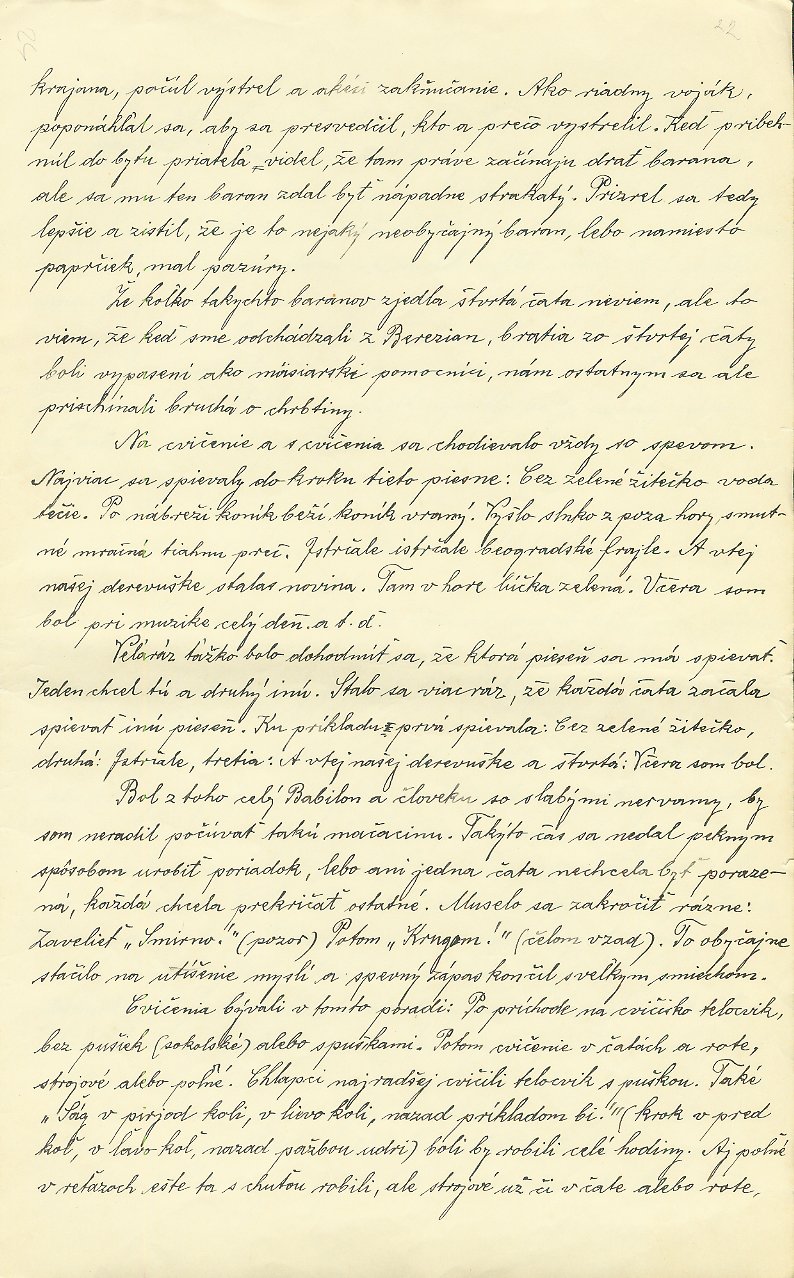 22
krajana, počúl výstrel a akési zakňučanie. Ako riadny voják,
poponáhlal sa, aby sa presvedčil, kto a prečo vystrelil. Keď pribeh-
núl do bytu priateľa videl, že tam práve začínaju drať barana,
ale sa mu ten baran zdal byť nápadne strakatý. Prizrel sa tedy
lepšie a zistil, že je to nejaký neobyčajný baran, lebo namiesto
paprčiek, mal pazúry.
Že kolko takychto baranov zjedla štvrtá čata neviem, ale to
viem, že keď sme odchádzali z Berezian, bratia zo štvrtej čaty
boli vypasení ako mäsiarski pomocníci, nám ostatnym sa ale
prischínali bruchá o chrbtiny.
Na cvičenie a s cvičenia sa chodievalo vždy so spevom.
Najviac sa spievaly do kroku tieto piesne: Cez zelené žitečko voda
tečie. Po nábreži koník beží, koník vraný. Vyšlo slnko z poza hory, smut-
né mračná tiahnu preč. Istrčale istrčale beogradské frajle. A vtej
našej derevuške stalas novina. Tam v hore lúčka zelená. Včera som
bol pri muzike celý deň. a t. ď.
Veľaráz tážko bolo dohodnúť sa, že ktorá pieseň sa má spievať.
Jeden chcel tú a druhý inú. Stalo sa viac ráz, že každá čata začala
spievať inú pieseň. Ku príkladu prvá spievala: Cez zelené žitečko,
druhá: Istrčale, tretia: A vtej našej derevuške a štvrtá: Včera som bol.
Bol z toho celý Babilon a človeku so slabými nervamy, by
som neradil počúvať takú mačacinu. Takýto čas sa nedal peknym
spôsobom urobiť poriadok, lebo ani jedna čata nechcela byť poraze-
ná, každá chcela prekričať ostatné. Muselo sa zakročiť rázne:
Zavelieť „Smirno!" (pozor) Potom „Krugom!" (čelom vzad). To obyčajne
stačilo na utíšenie myslí a spevný zápas končil s veľkym smiechom.
Cvičenia bývali v tomto poradí: Po príchode na cvičisko telocvik,
bez pušiek (sokolské) alebo s puškami. Potom cvičenie v čatách a rote,
strojové alebo poľné. Chlapci najradšej cvičili telocvik s puškou. Také
„Šág v pirjod koli, v lievo koli, nazad príkladom bi!" (krok v pred
koľ, v ľavo koľ, nazad pažbou udri) boli by robili celé hodiny. Aj poľné
v reťazoch ešte ta s chuťou robili, ale strojové už či v čate alebo rote,